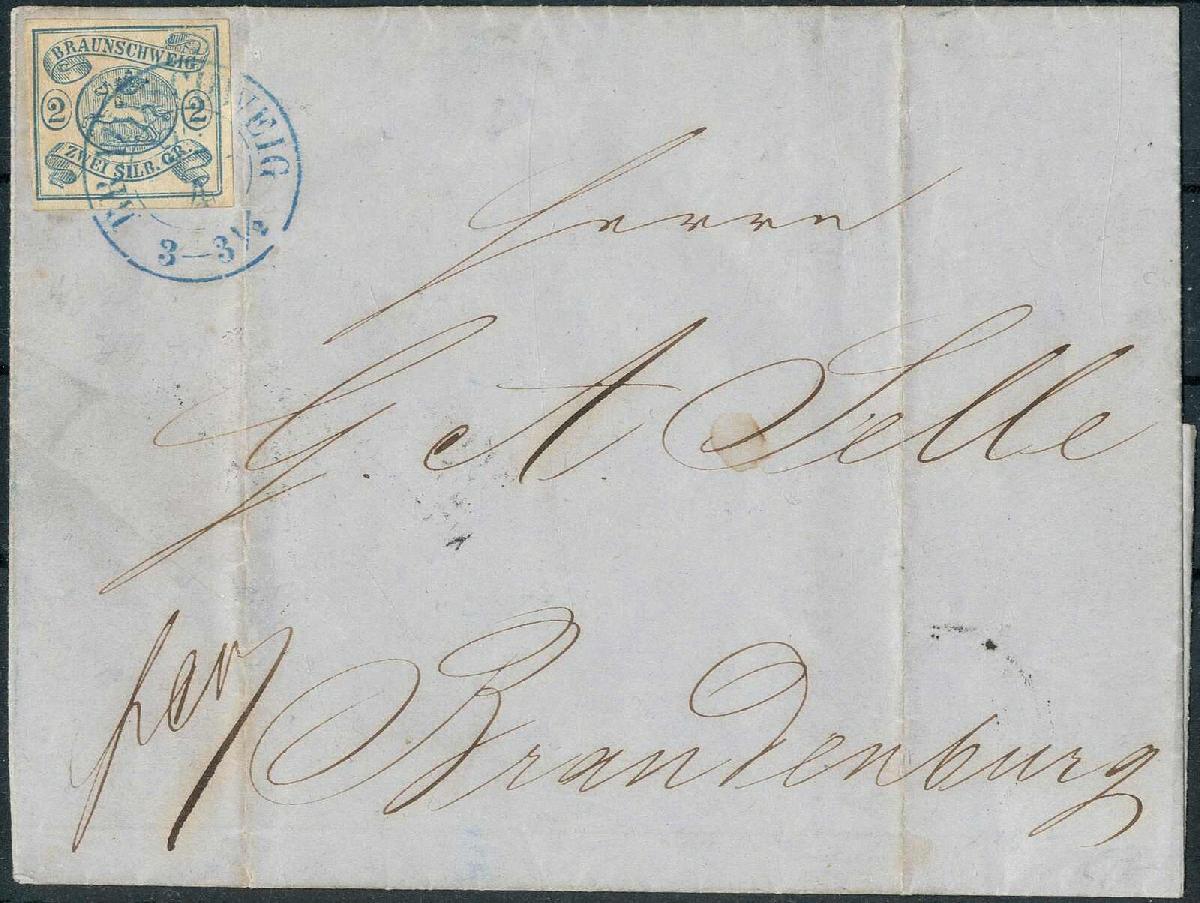 BRAUNSCHWEIG
2 2
ZWEI SILR. GR.
3—3½
Herrn
G. A Selle
Brandenburg